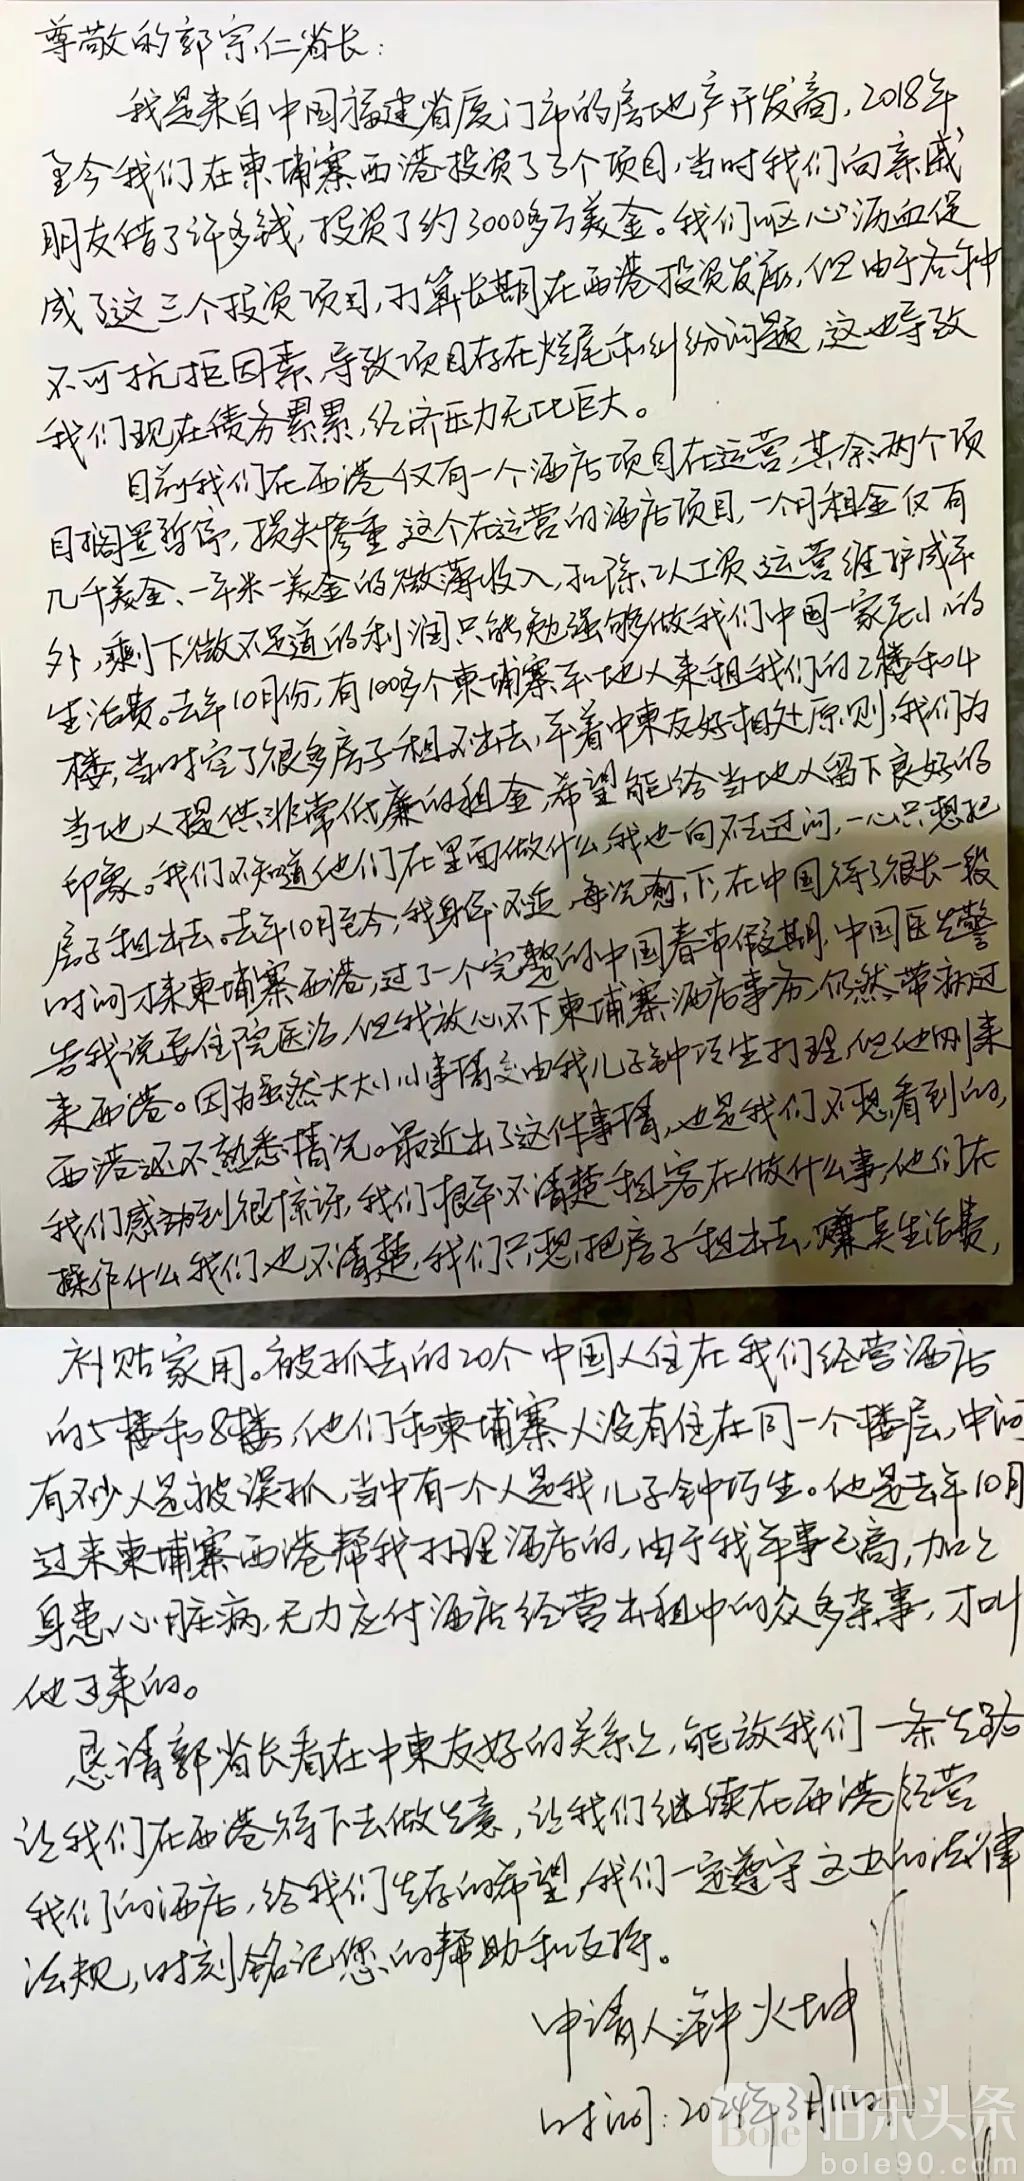 尊敬的郭宗仁省长:
我是来自中国福建省厦门市的房地产开发商,2018年
至今我们在柬埔寨西港投资了3个项目,当时我们向亲戚
朋友借了许多钱,投资了约3000多万美金。我们呕心沥血促
成了这三个投资项目,打算长期在西港投资发展,但由于各种
不可抗拒因素,导致项目存在烂尾和纠纷问题,这也导致
我们现在债务累累,经济压力无比巨大。
目前我们在西港仅有一个酒店项目在运营,其余两个项
目搁置暂停,损失惨重。这个在运营的酒店项目,一个月租金仅有
几千美金、一年米一美金的微薄收入,扣除人工资、运营维护成本
外,剩下微不足道的利润只能勉强够做我们中国一家老小的
生活费。去年10月份,有100多个柬埔寨本地人来租我们的2楼和4
楼,当时空了很多房子租不出去,本着中柬友好相处原则,我们为
当地人提供非常低廉的租金,希望能给当地人留下良好的
印象。我们不知道他们在里面做什么,我也一向不去过问,一心只想把
房子租出去。去年10月至今,我身体不适,每况愈下,在中国待了很长一段
时间才来柬埔寨西港,过了一个完整的中国春节假期,中国医生警
告我说要住院医治,但我放心不下柬埔寨酒店事务,仍然带病过
来西港。因为虽然大大小小事情交由我儿子钟巧生打理,但他刚来
西港还不熟悉情况。最近出了这件事情,也是我们不想看到的,
我们感到很惊讶,我们根本不清楚租客在做什么事,他们在
操作什么我们也不清楚,我们只想把房子租出去,赚其生活费,
补贴家用。被抓去的20个中国人住在我们经营酒店
的5楼和8楼,他们和柬埔寨人没有住在同一个楼层,中间
有不少人是被误抓,当中有一个人是我儿子钟巧生。他是去年10月
过来柬埔寨西港帮我打理酒店的,由于我年事已高,加上
身患心脏病,无力应付酒店经营出租中的众多杂事,才叫
他过来的。
恳请郭省长看在中柬友好的关系上,能放我们一条生路
让我们在西港待下去做生意,让我们继续在西港经营
我们的酒店,给我们生存的希望,我们一定遵守这边的法律
法规,时刻铭记您的帮助和支持。
申请人:钟火坤
时间:2024年3月11日
伯乐头条
Bole
bole90.com